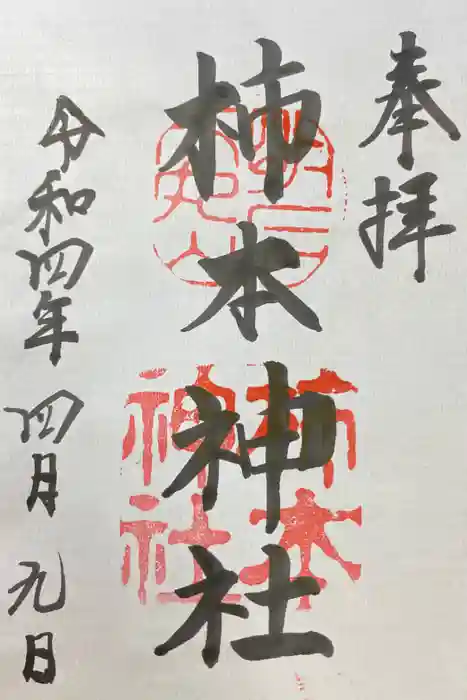 奉拝
柿本神社
令和四年 四月 九日
柿本
神社